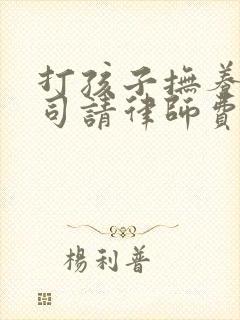 打孩子撫養
司請律師費
楊利普